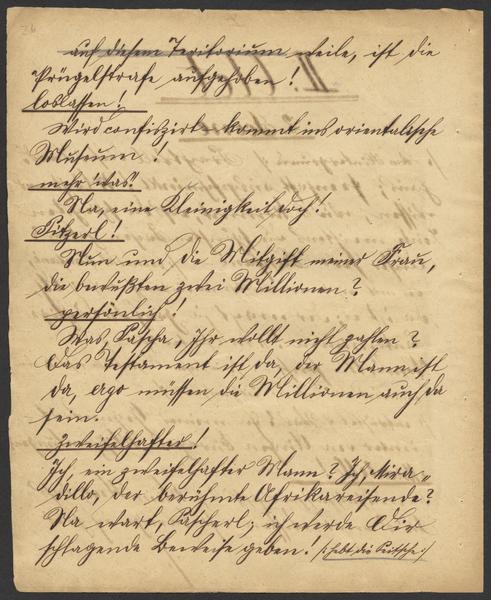 26
auf diesem Teritorium weile, ist die
Prügelstrafe aufgehoben!
loslassen!
Wird confiszirt kommt ins orientalische
Museum!
mehr was!
Na, eine Kleinigkeit doch!
Fitzerl!
Nun und die Mitgift meiner Frau,
die bewußten zwei Millionen?
persönlich!
Was, Pascha, Ihr wollt nicht zahlen?
Das Testament ist da, der Mann ist
da, ergo müssen die Millionen auch da
sein.
zweifelhafter!
Ich, ein zweifelhafter Mann? Ich, Mira-
dillo, der berühmte Afrikareisende?
Na wart, Pascherl, ich werde Dir
schlagende Beweise geben! /: hebt die Peitsche :/